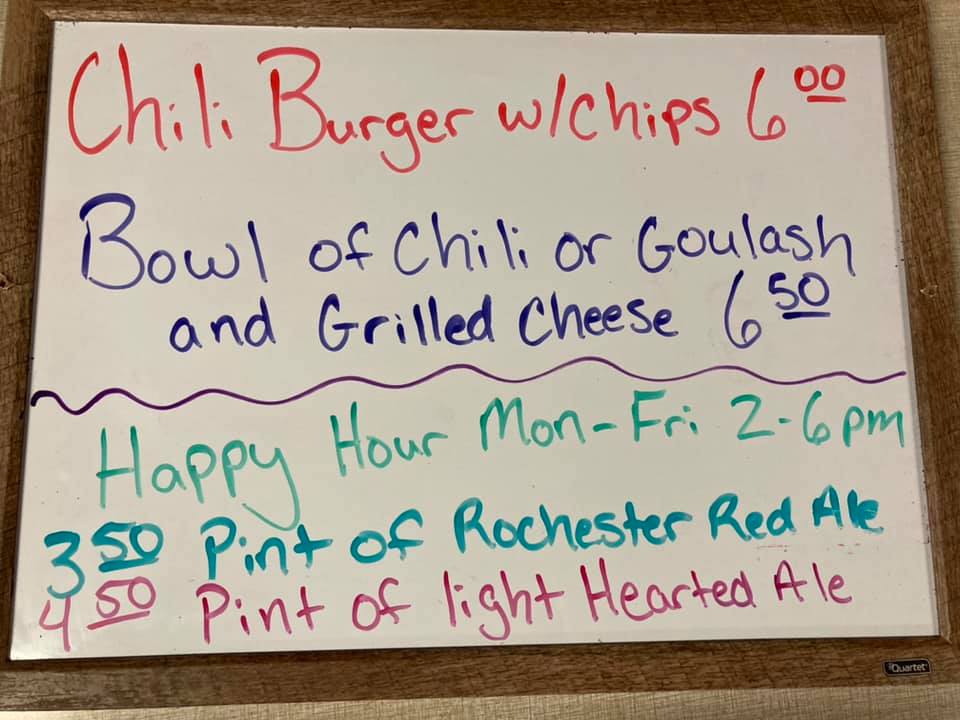 Chili Burger w/chips 6 00
Bowl of Chili or Goulash
and Grilled Cheese 6 50
Happy Hour Mon-Fri 2-6pm
3 50 Pint of Rochester Red Ale
4 50 Pint of light Hearted Ale
Quartet